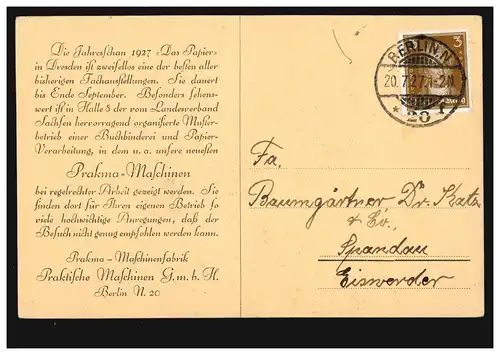 Die Jahresschau 1927 »Das Papier«
in Dresden ist zweifellos eine der besten aller
bisherigen Fachausstellungen. Sie dauert
bis Ende September. Besonders sehens-
wert ist in Halle 8 der vom Landesverband
Sachsen hervorragend organisierte Muster-
betrieb einer Buchbinderei und Papier-
Verarbeitung, in dem u. a. unsere neuesten
Prakma-Maschinen
bei regelrechter Arbeit gezeigt werden. Sie
finden dort für Ihren eigenen Betrieb so
viele hochwichtige Anregungen, daß der
Besuch nicht genug empfohlen werden kann.
Prakma – Maschinenfabrik
Praktische Maschinen G. m. b. H.
Berlin N. 20
BERLIN.N
20.7.27.1-2N
* 20
3
Fa.
Baumgärtner Dr. Katz
& Co.
Spandau
Eiswerder